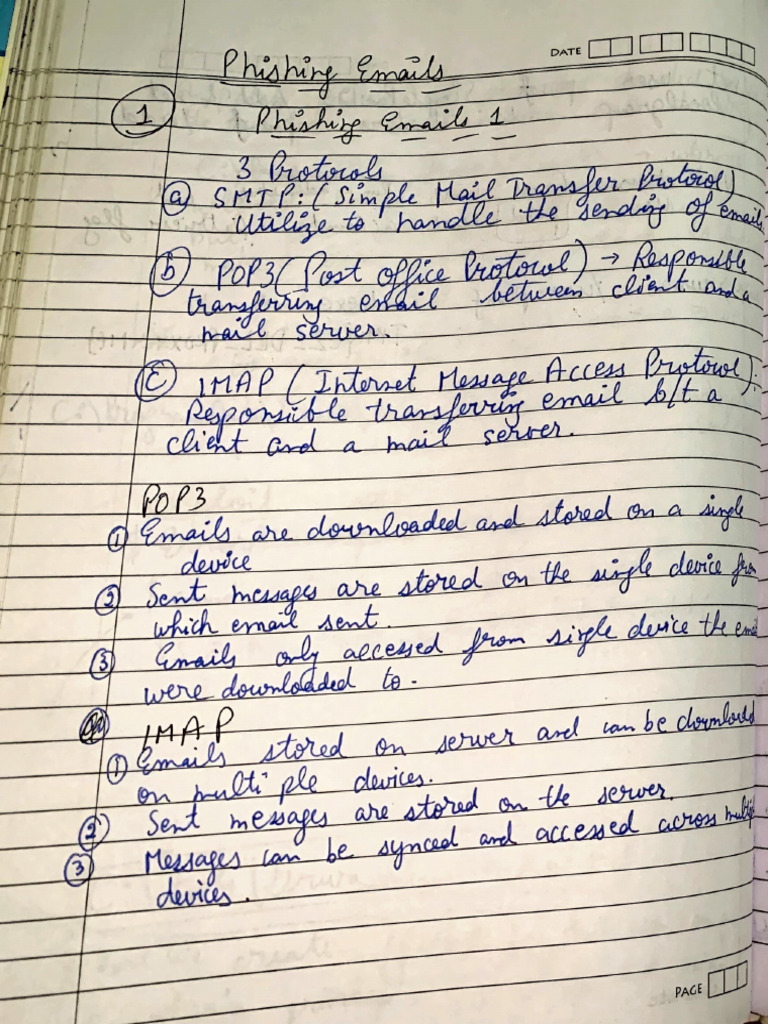 DATE
Phishing Emails
1 Phishing Emails 1
3 Protocols
a SMTP: (Simple Mail Transfer Protocol)
Utilize to handle the sending of emails
b POP3 (Post office Protocol) → Responsible
transferring email between client and a
mail server.
c IMAP (Internet Message Access Protocol):
Responsible transferring email b/t a
client and a mail server.
POP3
1 Emails are downloaded and stored on a single
device
2 Sent messages are stored on the single device from
which email sent.
3 Emails only accessed from single device the email
were downloaded to.
IMAP
1 Emails stored on server and can be download
on multiple devices.
2 Sent messages are stored on the server.
3 Messages can be synced and accessed across multiple
devices.
PAGE